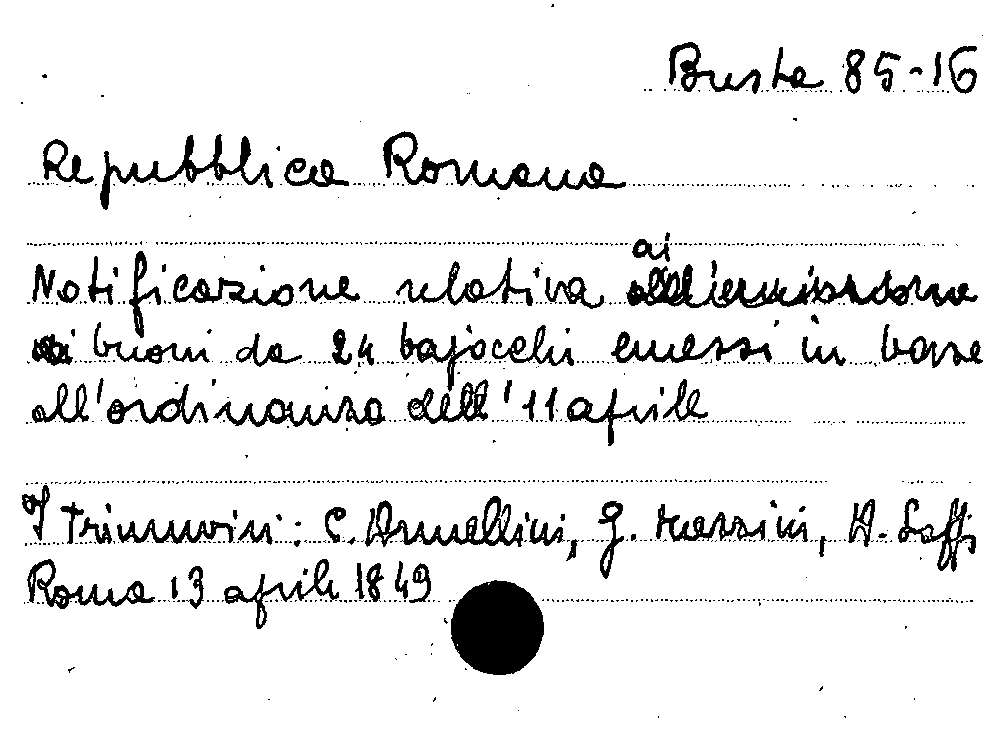 Busta 85-16
Repubblica Romana
Notificazione relativa ai all'emissione
buoni da 24 bajocchi emessi in base
all'ordinanza dell'11 aprile
I Triumviri: C. Armellini, G. Mazzini, A. Saffi
Roma 13 aprile 1849